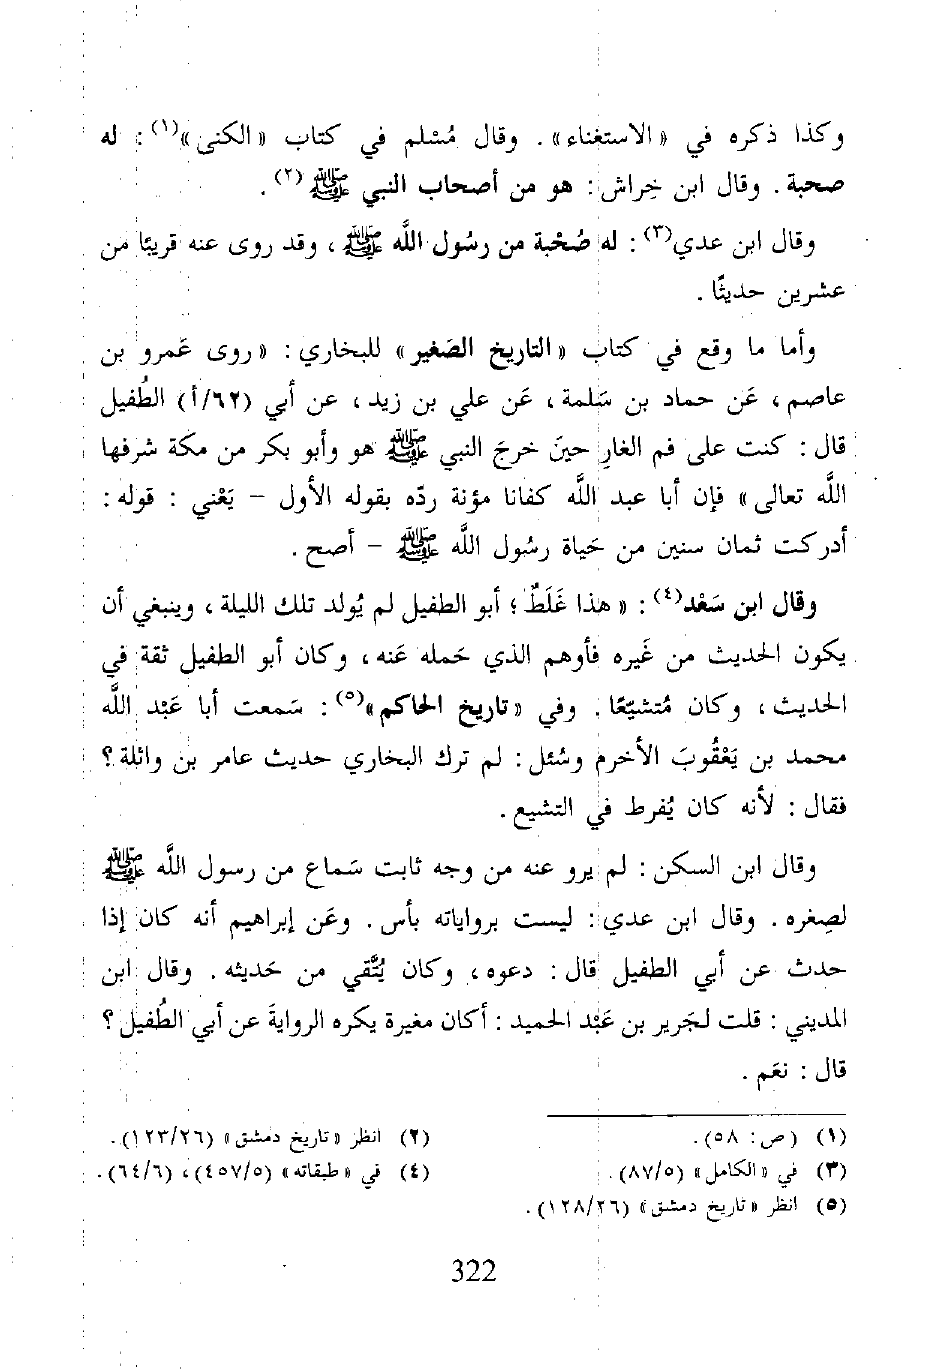 وكذا ذكره في « الاستغناء » . وقال مُسْلم في كتاب « الكنى »(١) : له
صحبة . وقال ابن خِراش : هو من أصحاب النبي ﷺ (٢) .
وقال ابن عدي(٣) : له صُحْبة من رسُول اللَّه ﷺ ، وقد روى عنه قريبًا من
عشرين حديثًا .
وأما ما وقع في كتاب « التاريخ الصَغير » للبخاري : « روى عَمرو بن
عاصم ، عَن حماد بن سَلمة ، عَن علي بن زيد ، عن أبي (٦٢/أ) الطُفيل
قال : كنت على فم الغارِ حينَ خرجَ النبي ﷺ هو وأبو بكر من مكة شرفها
اللَّه تعالى » فإن أبا عبد اللَّه كفانا مؤنة ردّه بقوله الأول – يَعْني : قوله :
أدركت ثمان سنين من حَياة رسُول اللَّه ﷺ – أصح .
وقال ابن سَعْد(٤) : « هذا غَلَطٌ ؛ أبو الطفيل لم يُولد تلك الليلة ، وينبغي أن
يكون الحديث من غَيره فأوهم الذي حَمله عَنه ، وكان أبو الطفيل ثقة في
الحديث ، وكان مُتشيّعًا . وفي « تاريخ الحاكم »(٥) : سَمعت أبا عَبْد اللَّه
محمد بن يَعْقُوبَ الأخرم وسُئل : لم ترك البخاري حديث عامر بن واثلة ؟
فقال : لأنه كان يُفرط في التشيع .
وقال ابن السكن : لم يرو عنه من وجه ثابت سَماع من رسول اللَّه ﷺ
لصِغره . وقال ابن عدي : ليست برواياته بأس . وعَن إبراهيم أنه كان إذا
حدث عن أبي الطفيل قال : دعوه ، وكان يُتَّقي من حَديثه . وقال ابن
المديني : قلت لجَرير بن عَبْد الحميد : أكان مغيرة يكره الروايةَ عن أبي الطُفيل ؟
قال : نعَم .
(١) (ص: ٥٨) .
(٢) انظر « تاريخ دمشق » (١٢٣/٢٦) .
(٣) في « الكامل » (٨٧/٥) .
(٤) في « طبقاته » (٤٥٧/٥) ، (٦٤/٦) .
(٥) انظر « تاريخ دمشق » (١٢٨/٢٦) .
322